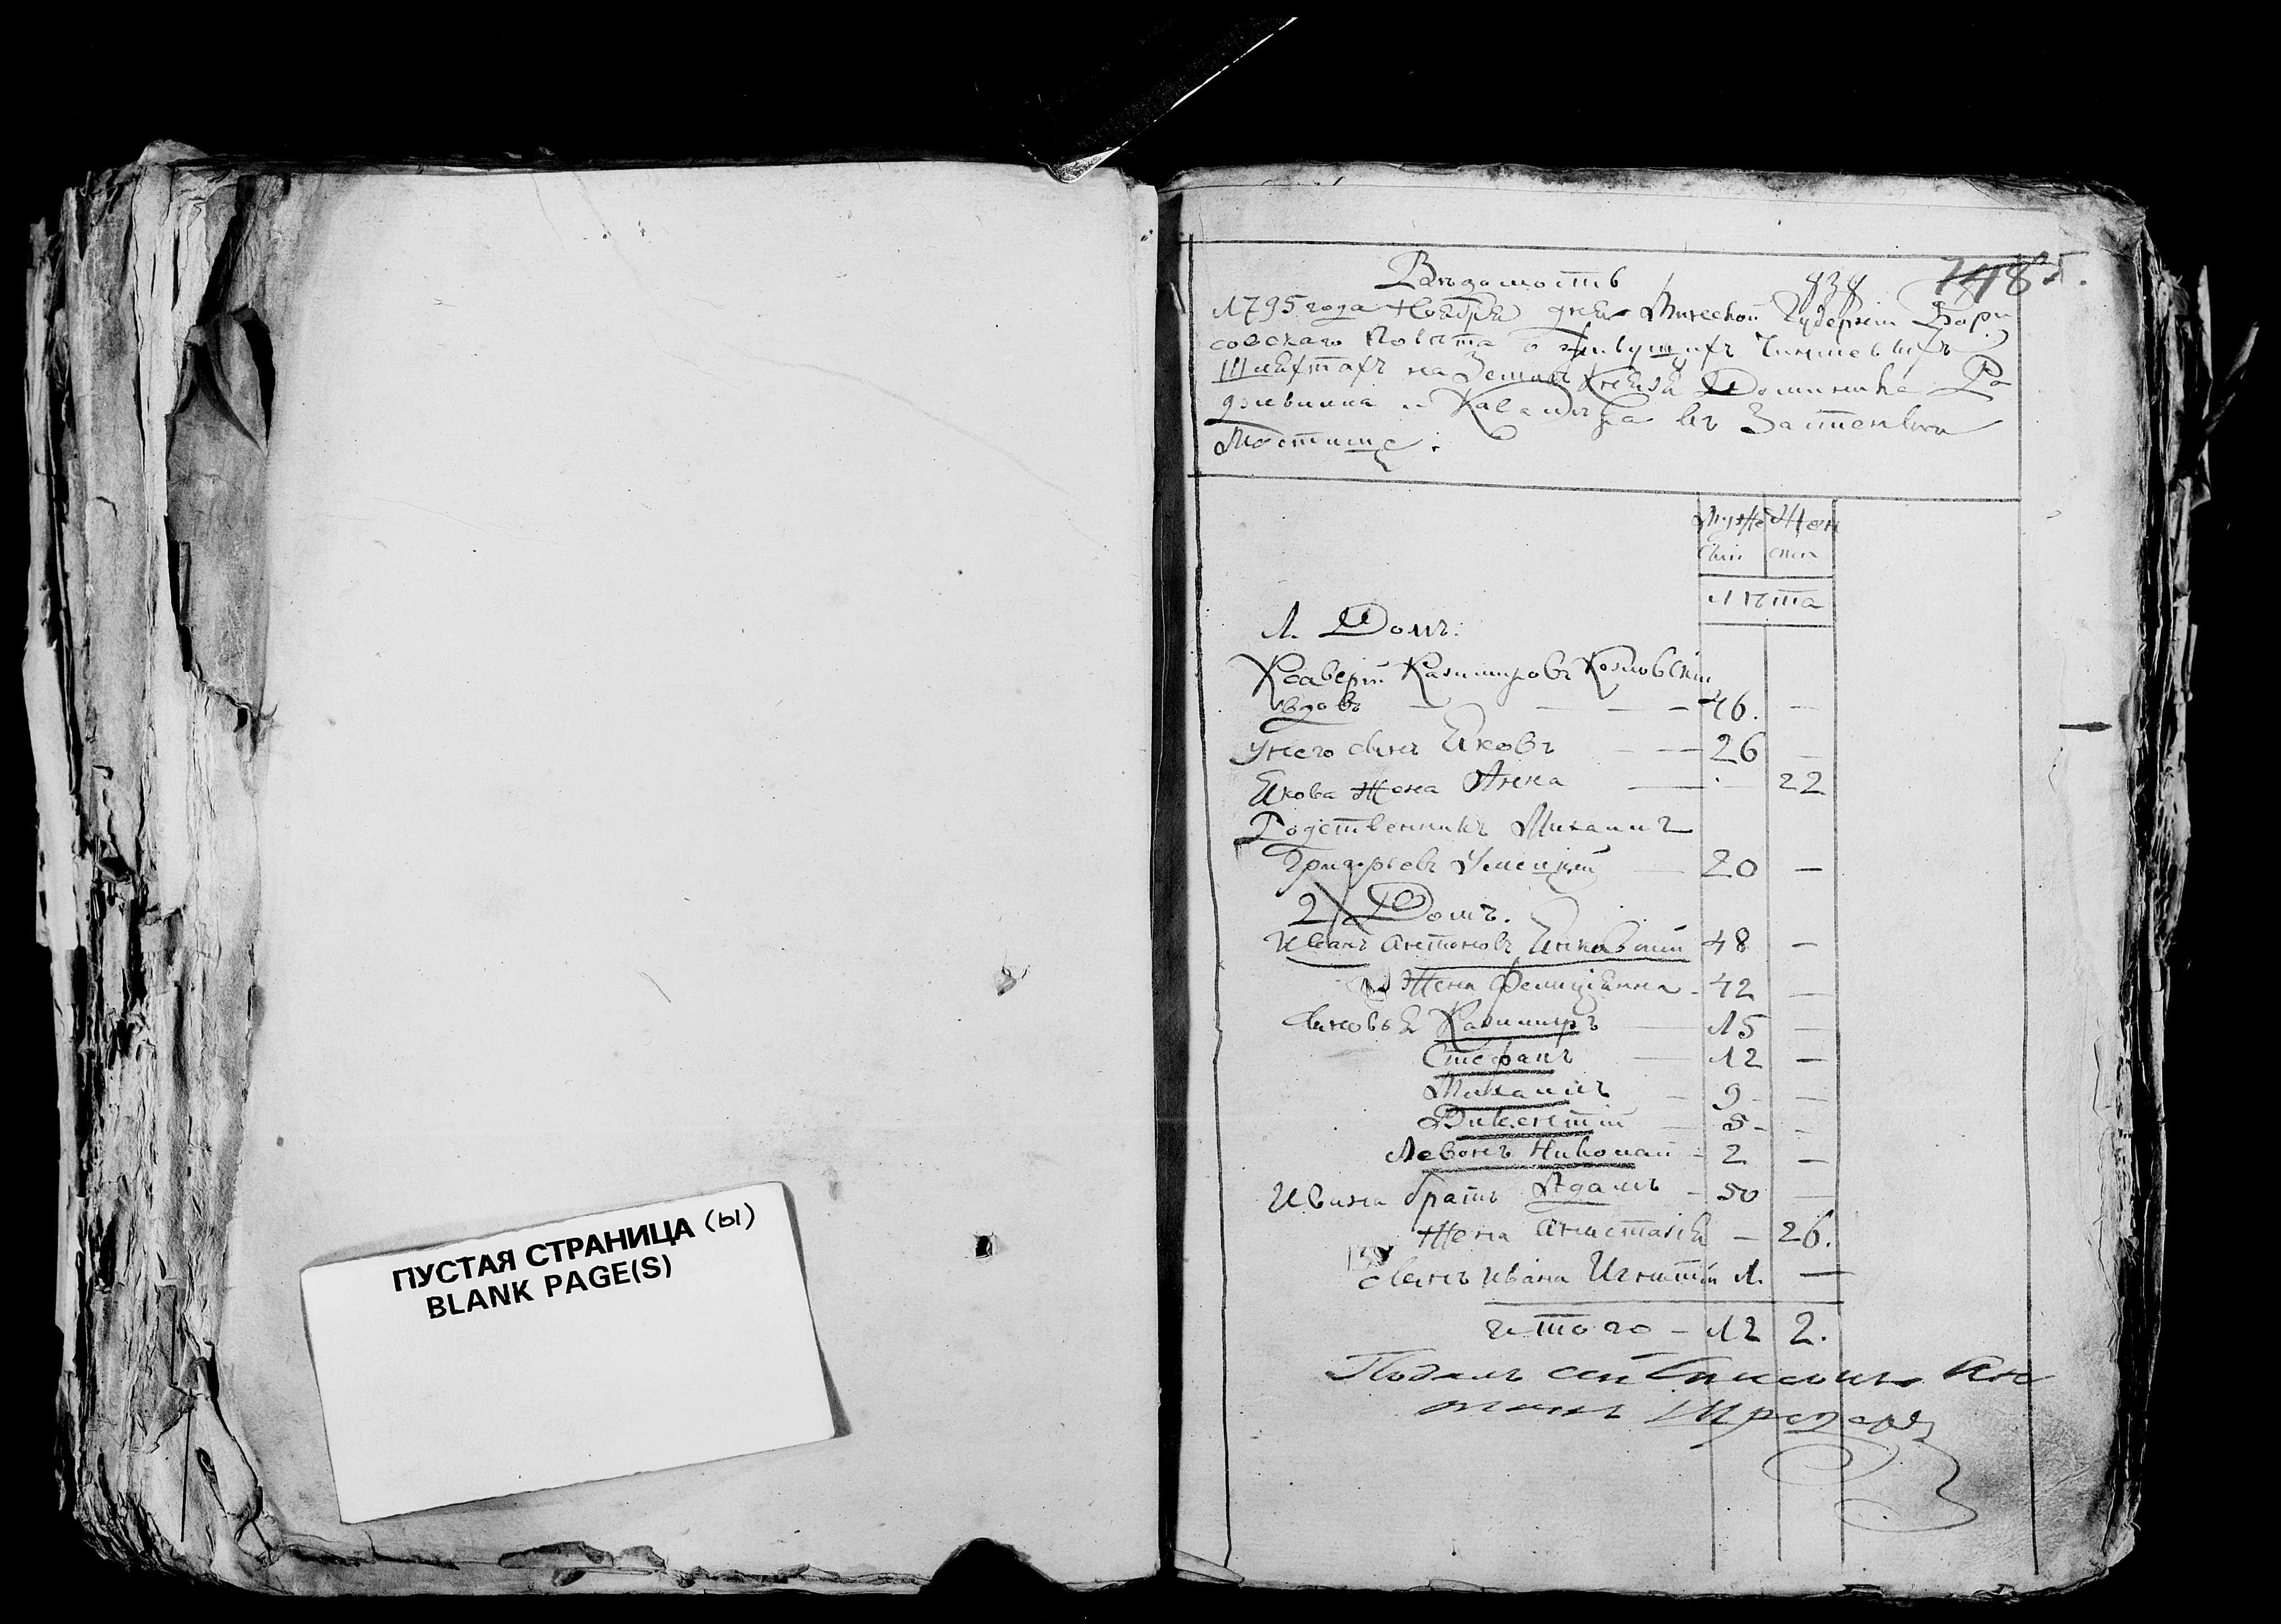 ПУСТАЯ СТРАНИЦА (ы)
BLANK PAGE(S)
Ведомость 838
1795 года Ноября дня Минской Губернии Бори
совского Повета о живущих Чиншевых
Шляхтах на Земли Князя Доминика Ра
дзивилла в Застенке
Мостище.
Муже Жен
ских ских
Лѣта
1. Домъ.
Ксаверій Казимировъ Козловскій
вдовъ — — — — 46. —
у него сынъ Яковъ — — 26 —
Якова Жена Анна — — 22
Родственникъ Михаилъ
Григорьевъ — 20 —
2 Домъ.
Иванъ Антоновъ Янковскій 48 —
Жена Фелициянна - 42 —
сыновья Казимиръ — 15 —
Стефанъ — 12 —
Михаилъ — 9 - —
Викентій — 5 - —
Левонъ Николай - 2 —
Ивана братъ Адамъ - 50 —
Жена Анастасія — 26.
сынъ Ивана Игнатій 1. —
итого - 12 2.
Подалъ сей Списокъ Ан
тонъ